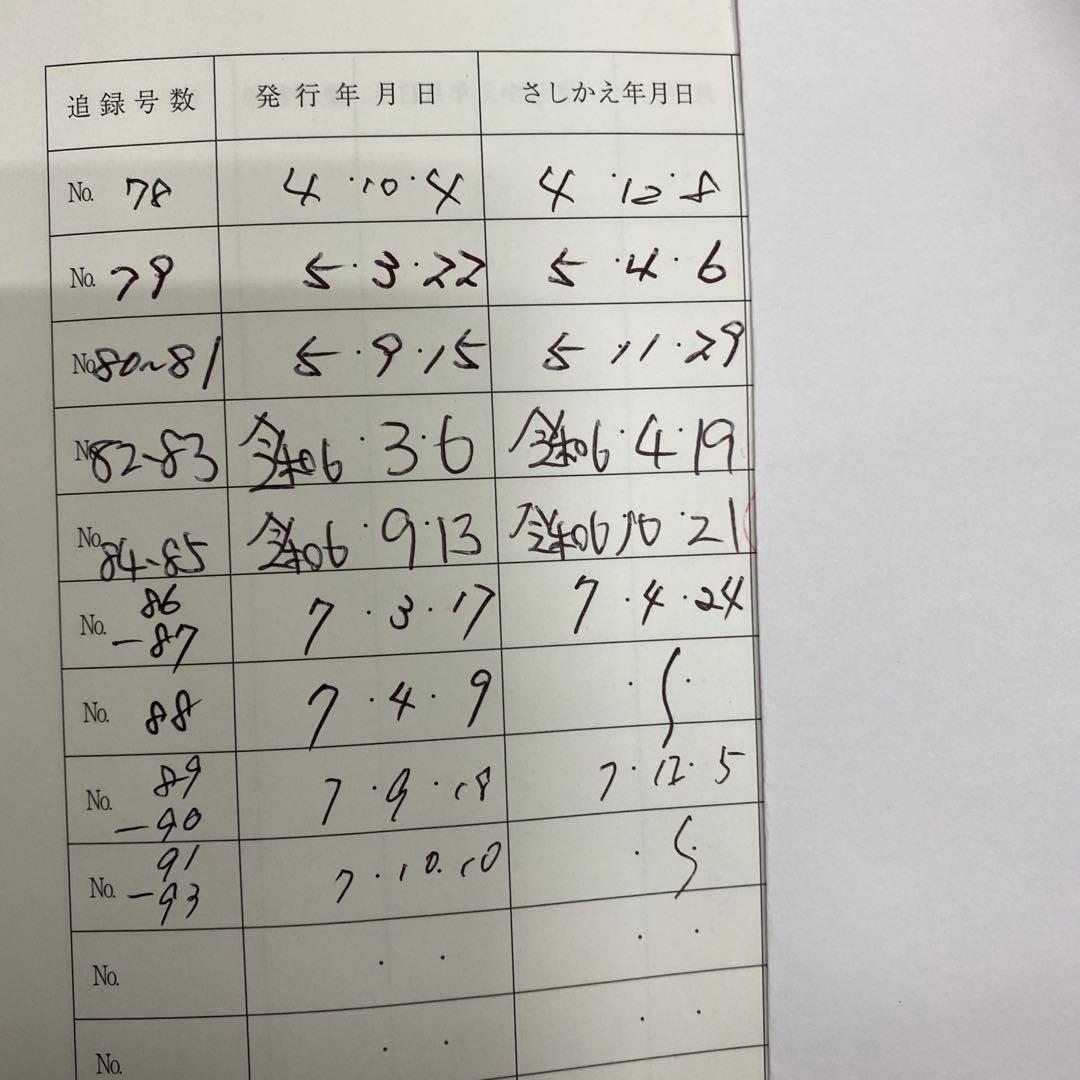 追録号数 発行年月日 さしかえ年月日
No. 78 4・10・4 4・12・8
No. 79 5・3・22 5・4・6
No. 80~81 5・9・15 5・11・29
No. 82~83 令和6・3・6 令和6・4・19
No. 84~85 令和6・9・13 令和6・10・21
No. 86 7・3・17 7・4・24
-87
No. 88 7・4・9 ・ ・
No. 89 7・9・18 7・12・5
-90
No. 91 7・10・10 ・ ・
-93
No. ・ ・ ・ ・
No. ・ ・ ・ ・